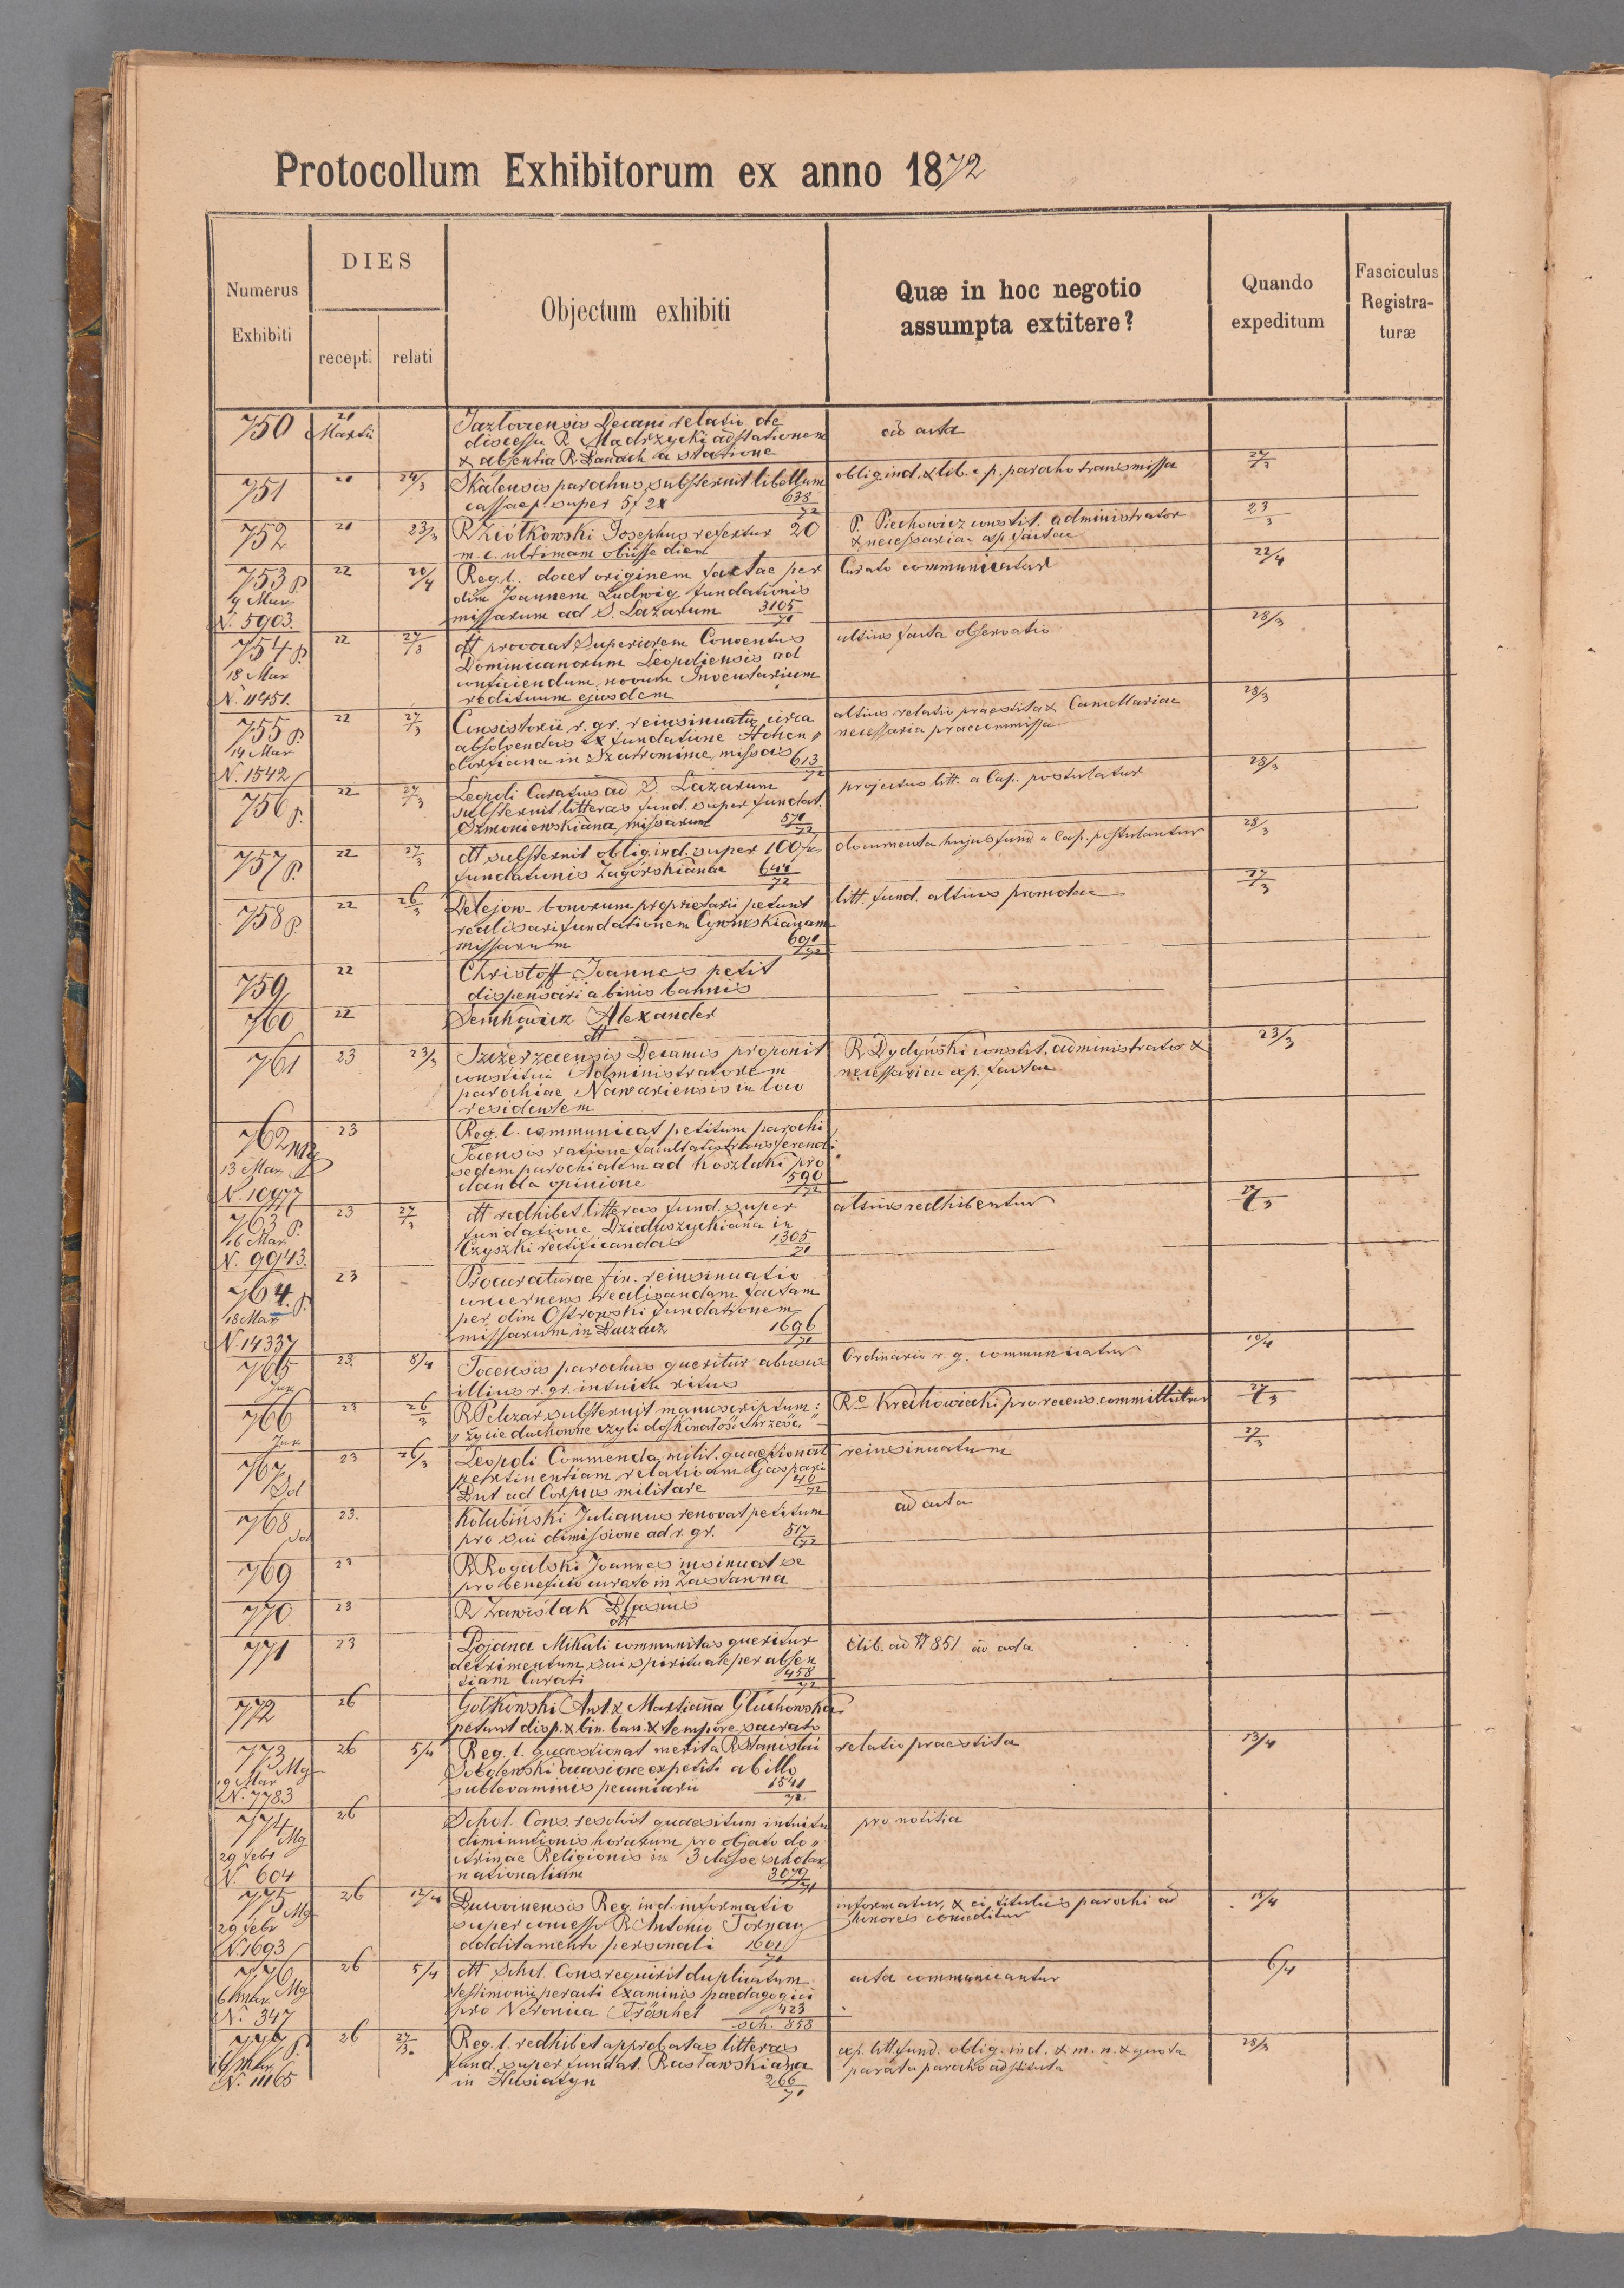 Protocollum Exhibitorum ex anno 1872
Numerus Exhibiti
DIES
recepti
relati
Objectum exhibiti
Quæ in hoc negotio
assumpta extitere?
Quando
expeditum
Fasciculus
Registra-
turæ
750 21 Martii Jazloviensis Decani relatio de ad acta
discessu R. Mądrzycki ad stationem
& absentia R. Banach a statione
751 21 24/3 Skalensis parochus substernit libellum oblig. ind. & lib. c. p. parocho transmissa 27/3
cassae p. super 5 f 2x 638/72
752 21 23/3 R. Ziółkowski Josephus refertur 20 P. Piechowicz constit. administrator 23/3
m. c. ultimam obiisse diem & necessaria exp. factae
753 p. 22 20/4 Reg. l. docet originem factae per Curato communicatur 22/4
9 Mar olim Joannem Ludwig fundationis
N. 5903. missarum ad S. Lazarum 3105/71
754 p. 22 27/3 dtt provocat Superiorem Conventus ultius facta observatio 28/3
18 Mar Dominicanorum Leopoliensis ad
N. 11451. conficiendum novum Inventarium
redituum ejusdem
755 p. 22 27/3 Consistorii r. gr. reinsinuatio circa altius relatio praestita & Cancellariae 28/3
14 Mar absolvendas ex fundatione Hohen necessaria praecommissa
N. 1542 dorfiana in Szutromince missas 613/72
756 p. 22 27/3 Leopoli Curatus ad S. Lazarum projectus litt. a Cap. postulatur 28/3
substernit litteras fund. super fundat.
Szmoniewskiana missarum 571/72
757 p. 22 27/3 dtt substernit oblig. ind. super 100 fr documenta hujus fund a Cap. postulantur 28/3
fundationis Zagórskianae 644/72
758 p. 22 26/3 Delejow bonorum proprietarii petunt litt. fund. altius promotae 27/3
realisari fundationem Cywińskianam
missarum 691/72
759 22 Christoff Joannes petit
dispensari a binis bannis
760 22 Semkowicz Alexander
dtt
761 23 23/3 Szczerzecensis Decanus proponit R. Dydyński constit. administrator & 23/3
constitui Administratorem necessaria exp. factae
parochiae Nawariensis in loco
residentem
762 23 Reg. l. communicat petitum parochi
13 Mar Tocensis ratione facultatis transferendi
N. 10977 sedem parochialem ad Koszlaki pro
danda opinione 590/72
763 p. 23 27/3 dtt redhibet litteras fund. super altius redhibentur 27/3
16 Mar fundatione Dzieduszyckiana in
N. 9943. Czyszki rectificandas 1305/71
764. p. 23 Procuraturae fin. reinsinuatio
18 Mar concernens realisandam factam
N. 14337 per olim Ostrowski fundationem
missarum in Buczacz 1696/71
765 Jur 23. 8/4 Tocensis parochus queritur abusus Ordinario r. g. communicatur 10/4
illius r. gr. intuitu ritus
766 Jur 23 26/3 R. Pelczar substernit manuscriptum: Ro Krechowiecki pro recens. committitur 27/3
„życie duchowne czyli doskonałość chrześc."
767 Pol 23 26/3 Leopoli Commenda milit. quaestionat reinsinuatum 27/3
pertinentiam relatio am Gaspari
Dut ad Corpus militare 40/72
768 Pol 23. Kołubiński Julianus renovat petitum ad acta
pro sui dimissione ad r. gr. 517/72
769 23 R. Rogalski Joannes insinuat se
pro beneficio curato in Zastawna
770 23 R. Zawiślak Blasius
dtt
771 23 Pojana Mikuli communitas queritur Elib. ad N 851 ad acta
detrimentum sui spirituale per absen
tiam Curati 458/72
772 26 Gołkowski Ant. & Martianna Głuchowska
petunt disp. & bin. ban. & tempore sacrato
773 Mg 26 5/4 Reg. l. quaestionat merita R. Stanislai relatio praestita 13/4
19 Mar Sobolewski occasione expetiti ab illo
N. 7783 sublevaminis pecuniarii 1541/71
774 Mg 26 Schol. Cons. resolvit quaesitum intuitu pro notitia
29 Febr diminutionis horarum pro objecto do
N. 604 ctrinae Religionis in 3 classe scholar.
nationalium 3079/71
775 Mg 26 12/4 Bucovinensis Reg. ind. informatio informatur, & ei titulus parochi ad 15/4
29 Febr super concesso R. Antonio Tornay honores conceditur
N. 1693 additamento personali 1601/71
776 Mg 26 5/4 dtt Schol. Cons. requirit duplicatum acta communicantur 6/4
6 Mar testimonii peracti examinis paedagogici
N. 347 pro Veronica Fröschel 423/sch. 858
777 p. 26 27/3. Reg. l. redhibet approbatas litteras exp. litt. fund. oblig. ind. & m. n. & quota 28/3
fund. super fundat. Rusławskiana parata parocho adstituta
N. 11165 in Husiatyn 266/71